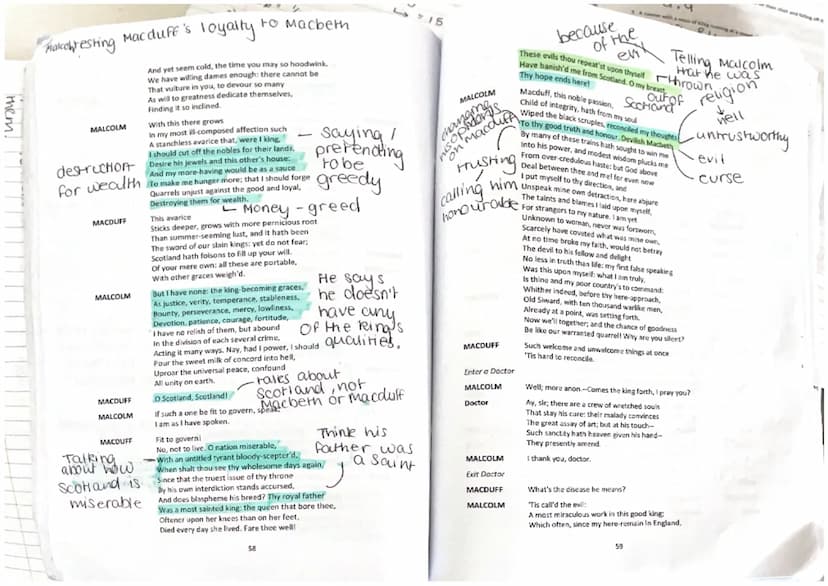 testing Macduff's loyalty to Macbeth
And yet seem cold, the time you may so hoodwink.
We have willing dames enough: there cannot be
That vulture in you, to devour so many
As will to greatness dedicate themselves,
Finding it so inclined.
MALCOLM With this there grows
In my most ill-composed affection such
A stanchless avarice that, were I king,
I should cut off the nobles for their lands,
Desire his jewels and this other's house:
And my more-having would be as a sauce
To make me hunger more; that I should forge
Quarrels unjust against the good and loyal,
Destroying them for wealth.
— saying / pretending to be greedy
destruction for wealth
Money - greed
MACDUFF This avarice
Sticks deeper, grows with more pernicious root
Than summer-seeming lust, and it hath been
The sword of our slain kings: yet do not fear;
Scotland hath foisons to fill up your will.
Of your mere own: all these are portable,
With other graces weigh'd.
MALCOLM But I have none: the king-becoming graces,
As justice, verity, temperance, stableness,
Bounty, perseverance, mercy, lowliness,
Devotion, patience, courage, fortitude,
I have no relish of them, but abound
In the division of each several crime,
Acting it many ways. Nay, had I power, I should
Pour the sweet milk of concord into hell,
Uproar the universal peace, confound
All unity on earth.
He says
he doesn't
have any
of the kings
qualities.
MACDUFF O Scotland, Scotland!
talks about
Scotland, not
Macbeth or Macduff
MALCOLM If such a one be fit to govern, speak:
I am as I have spoken.
MACDUFF Fit to govern!
No, not to live. O nation miserable,
With an untitled tyrant bloody-scepter'd,
When shalt thou see thy wholesome days again,
Since that the truest issue of thy throne
By his own interdiction stands accursed,
And does blaspheme his breed? Thy royal father
Was a most sainted king: the queen that bore thee,
Oftener upon her knees than on her feet,
Died every day she lived. Fare thee well!
Talking
about how
Scotland is
miserable
Think his
father was
a saint
58
because
of the
evil
These evils thou repeat'st upon thyself
Have banish'd me from Scotland. O my breast,
Thy hope ends here!
Telling Malcolm
that he was
thrown
out of
Scotland
MALCOLM Macduff, this noble passion,
Child of integrity, hath from my soul
Wiped the black scruples, reconciled my thoughts
To thy good truth and honour. Devilish Macbeth
By many of these trains hath sought to win me
Into his power, and modest wisdom plucks me
From over-credulous haste: but God above
Deal between thee and me! for even now
I put myself to thy direction, and
Unspeak mine own detraction, here abjure
The taints and blames I laid upon myself,
For strangers to my nature. I am yet
Unknown to woman, never was forsworn,
Scarcely have coveted what was mine own,
At no time broke my faith, would not betray
The devil to his fellow and delight
No less in truth than life: my first false speaking
Was this upon myself: what I am truly,
Is thine and my poor country's to command:
Whither indeed, before thy here-approach,
Old Siward, with ten thousand warlike men,
Already at a point, was setting forth.
Now we'll together; and the chance of goodness
Be like our warranted quarrel! Why are you silent?
religion
hell
untrustworthy
evil
curse
changing
his opinions
on Macduff
trusting
calling him
honourable
MACDUFF Such welcome and unwelcome things at once
'Tis hard to reconcile.
Enter a Doctor
MALCOLM Well; more anon.—Comes the king forth, I pray you?
Doctor Ay, sir; there are a crew of wretched souls
That stay his cure: their malady convinces
The great assay of art; but at his touch—
Such sanctity hath heaven given his hand—
They presently amend.
MALCOLM I thank you, doctor.
Exit Doctor
MACDUFF What's the disease he means?
MALCOLM 'Tis call'd the evil:
A most miraculous work in this good king;
Which often, since my here-remain in England,
59